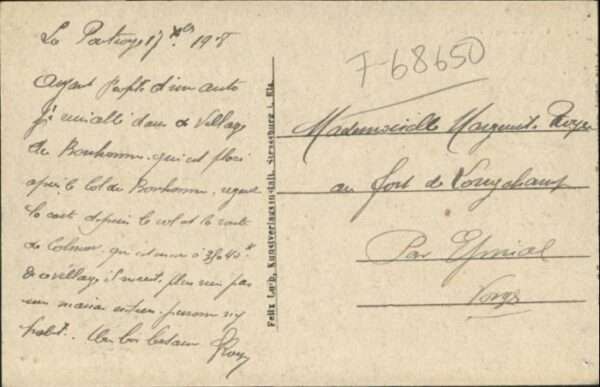 La Poutroye 17 Xbre 1918
F-68650
Ayant profité d'un auto
je suis allé dans ce village
du Bonhomme qui est placé
après le Col du Bonhomme,
la carte depuis le col et la route
de Colmar, qui est encore à
de ce village il n'existe plus un pas
une maison entière, personne n'y
habite. Un bon baiser
Felix Luib, Kunstverlagsanstalt, Strassburg i. Els.
Mademoiselle Marguerite
au fort de Longchamp
Par Epinal
Vosges